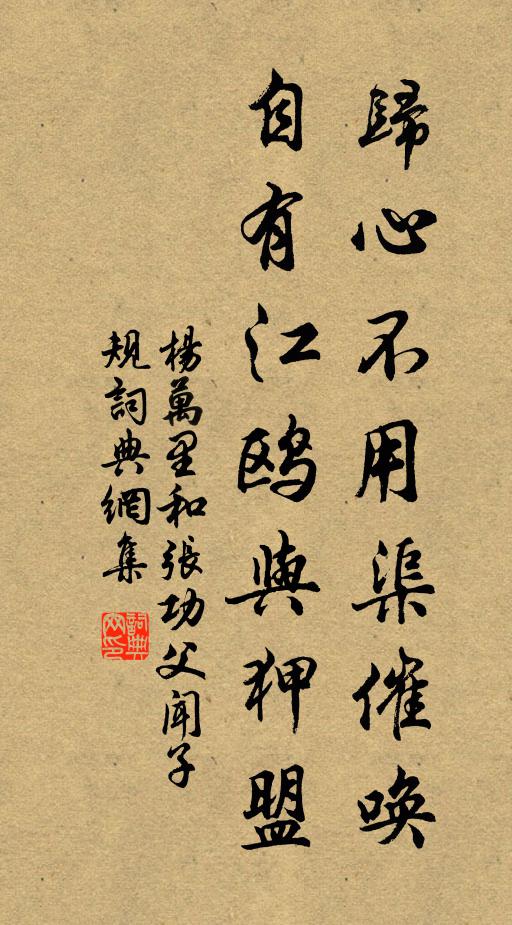 歸心不用渠催唤
自有江鸥與狎盟
楊萬里和張功父聞子
規詞典網集
詞典網印